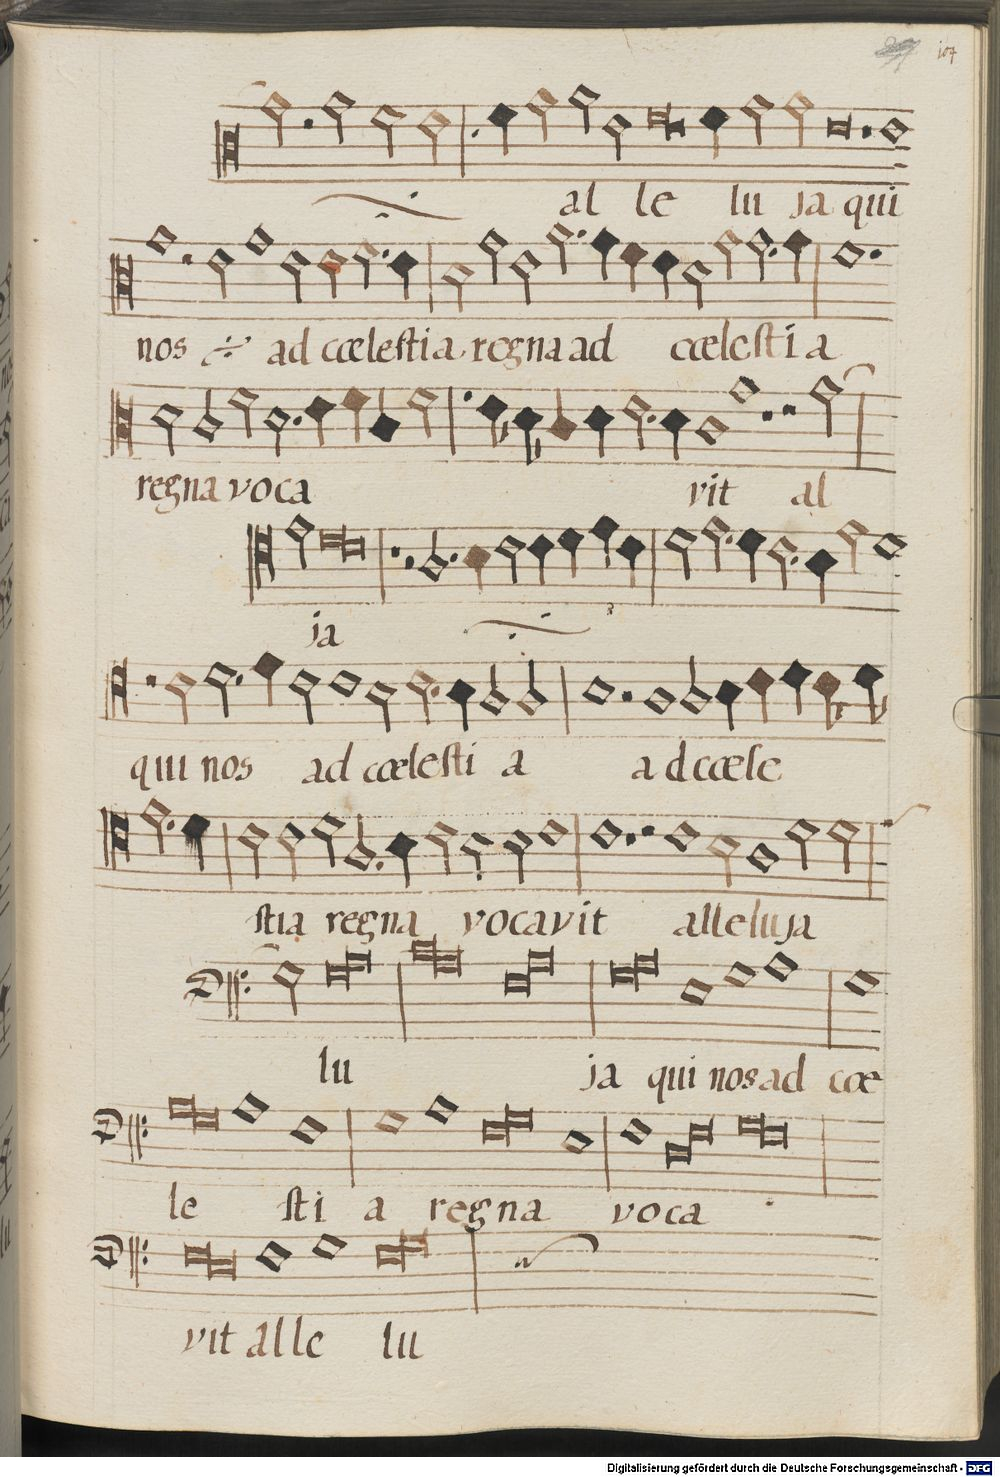 107
al le lu ja qui
nos ad cœlestia regna ad cœlestia
regna voca vit al
ja
qui nos ad cœlesti a ad cœle
stia regna vocavit alleluja
lu ja qui nos ad cœ
le sti a regna voca
vit alle lu
Digitalisierung gefördert durch die Deutsche Forschungsgemeinschaft - DFG